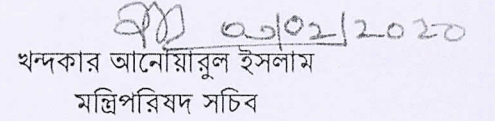 ০৩/০২/২০২০
খন্দকার আনোয়ারুল ইসলাম
মন্ত্রিপরিষদ সচিব